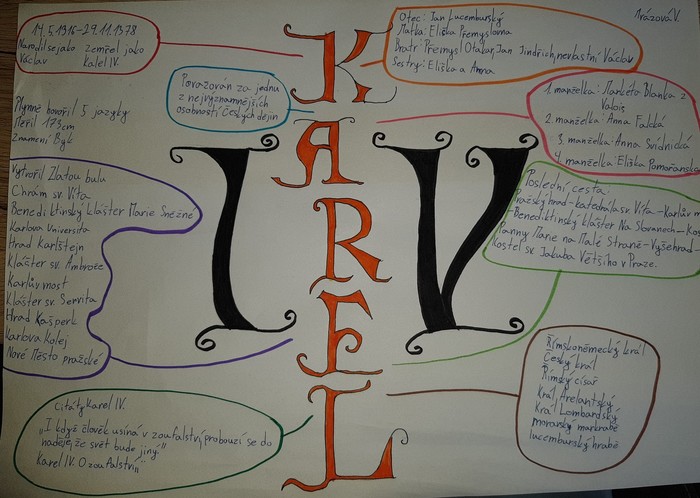 14.5.1316-29.11.1378
Narodil se jako zemřel jako
Václav Karel IV.
Otec: Jan Lucemburský
Matka: Eliška Přemyslovna
Bratr: Přemysl Otakar, Jan Jindřich, nevlastní Václav
Sestry: Eliška a Anna
Mrázová V.
Považován za jednu
z nejvýznamnějších
osobností českých dějin
Plynně hovořil 5 jazyky
Měřil 173cm
Znamení Býk
1. manželka: Markéta Blanka z
Valois
2. manželka: Anna Falcká
3. manželka: Anna Svídnická
4. manželka: Eliška Pomořanská
KAREL
IV
Vytvořil Zlatou bulu
Chrám sv. Víta
Benediktinský klášter Marie Sněžné
Karlova Univerzita
Hrad Karlštejn
Klášter sv. Ambrože
Karlův most
Klášter sv. Servíta
Hrad Kašperk
Karlova Kolej
Nové Město pražské
Poslední cesta:
Pražský hrad-katedrála sv. Víta-Karlův
-Benediktinský klášter Na Slovanech-Kos
Panny Marie na Malé Straně-Vyšehrad-
Kostel sv. Jakuba Většího v Praze.
Římskoněmecký král
Český král
Římský císař
Král Arelantský
Král Lombardský
moravský markrabě
lucemburský hrabě
Citáty Karel IV.
„I když člověk usíná v zoufalství, probouzí se do
naděje, že svět bude jiný."
Karel IV. O zoufalství"